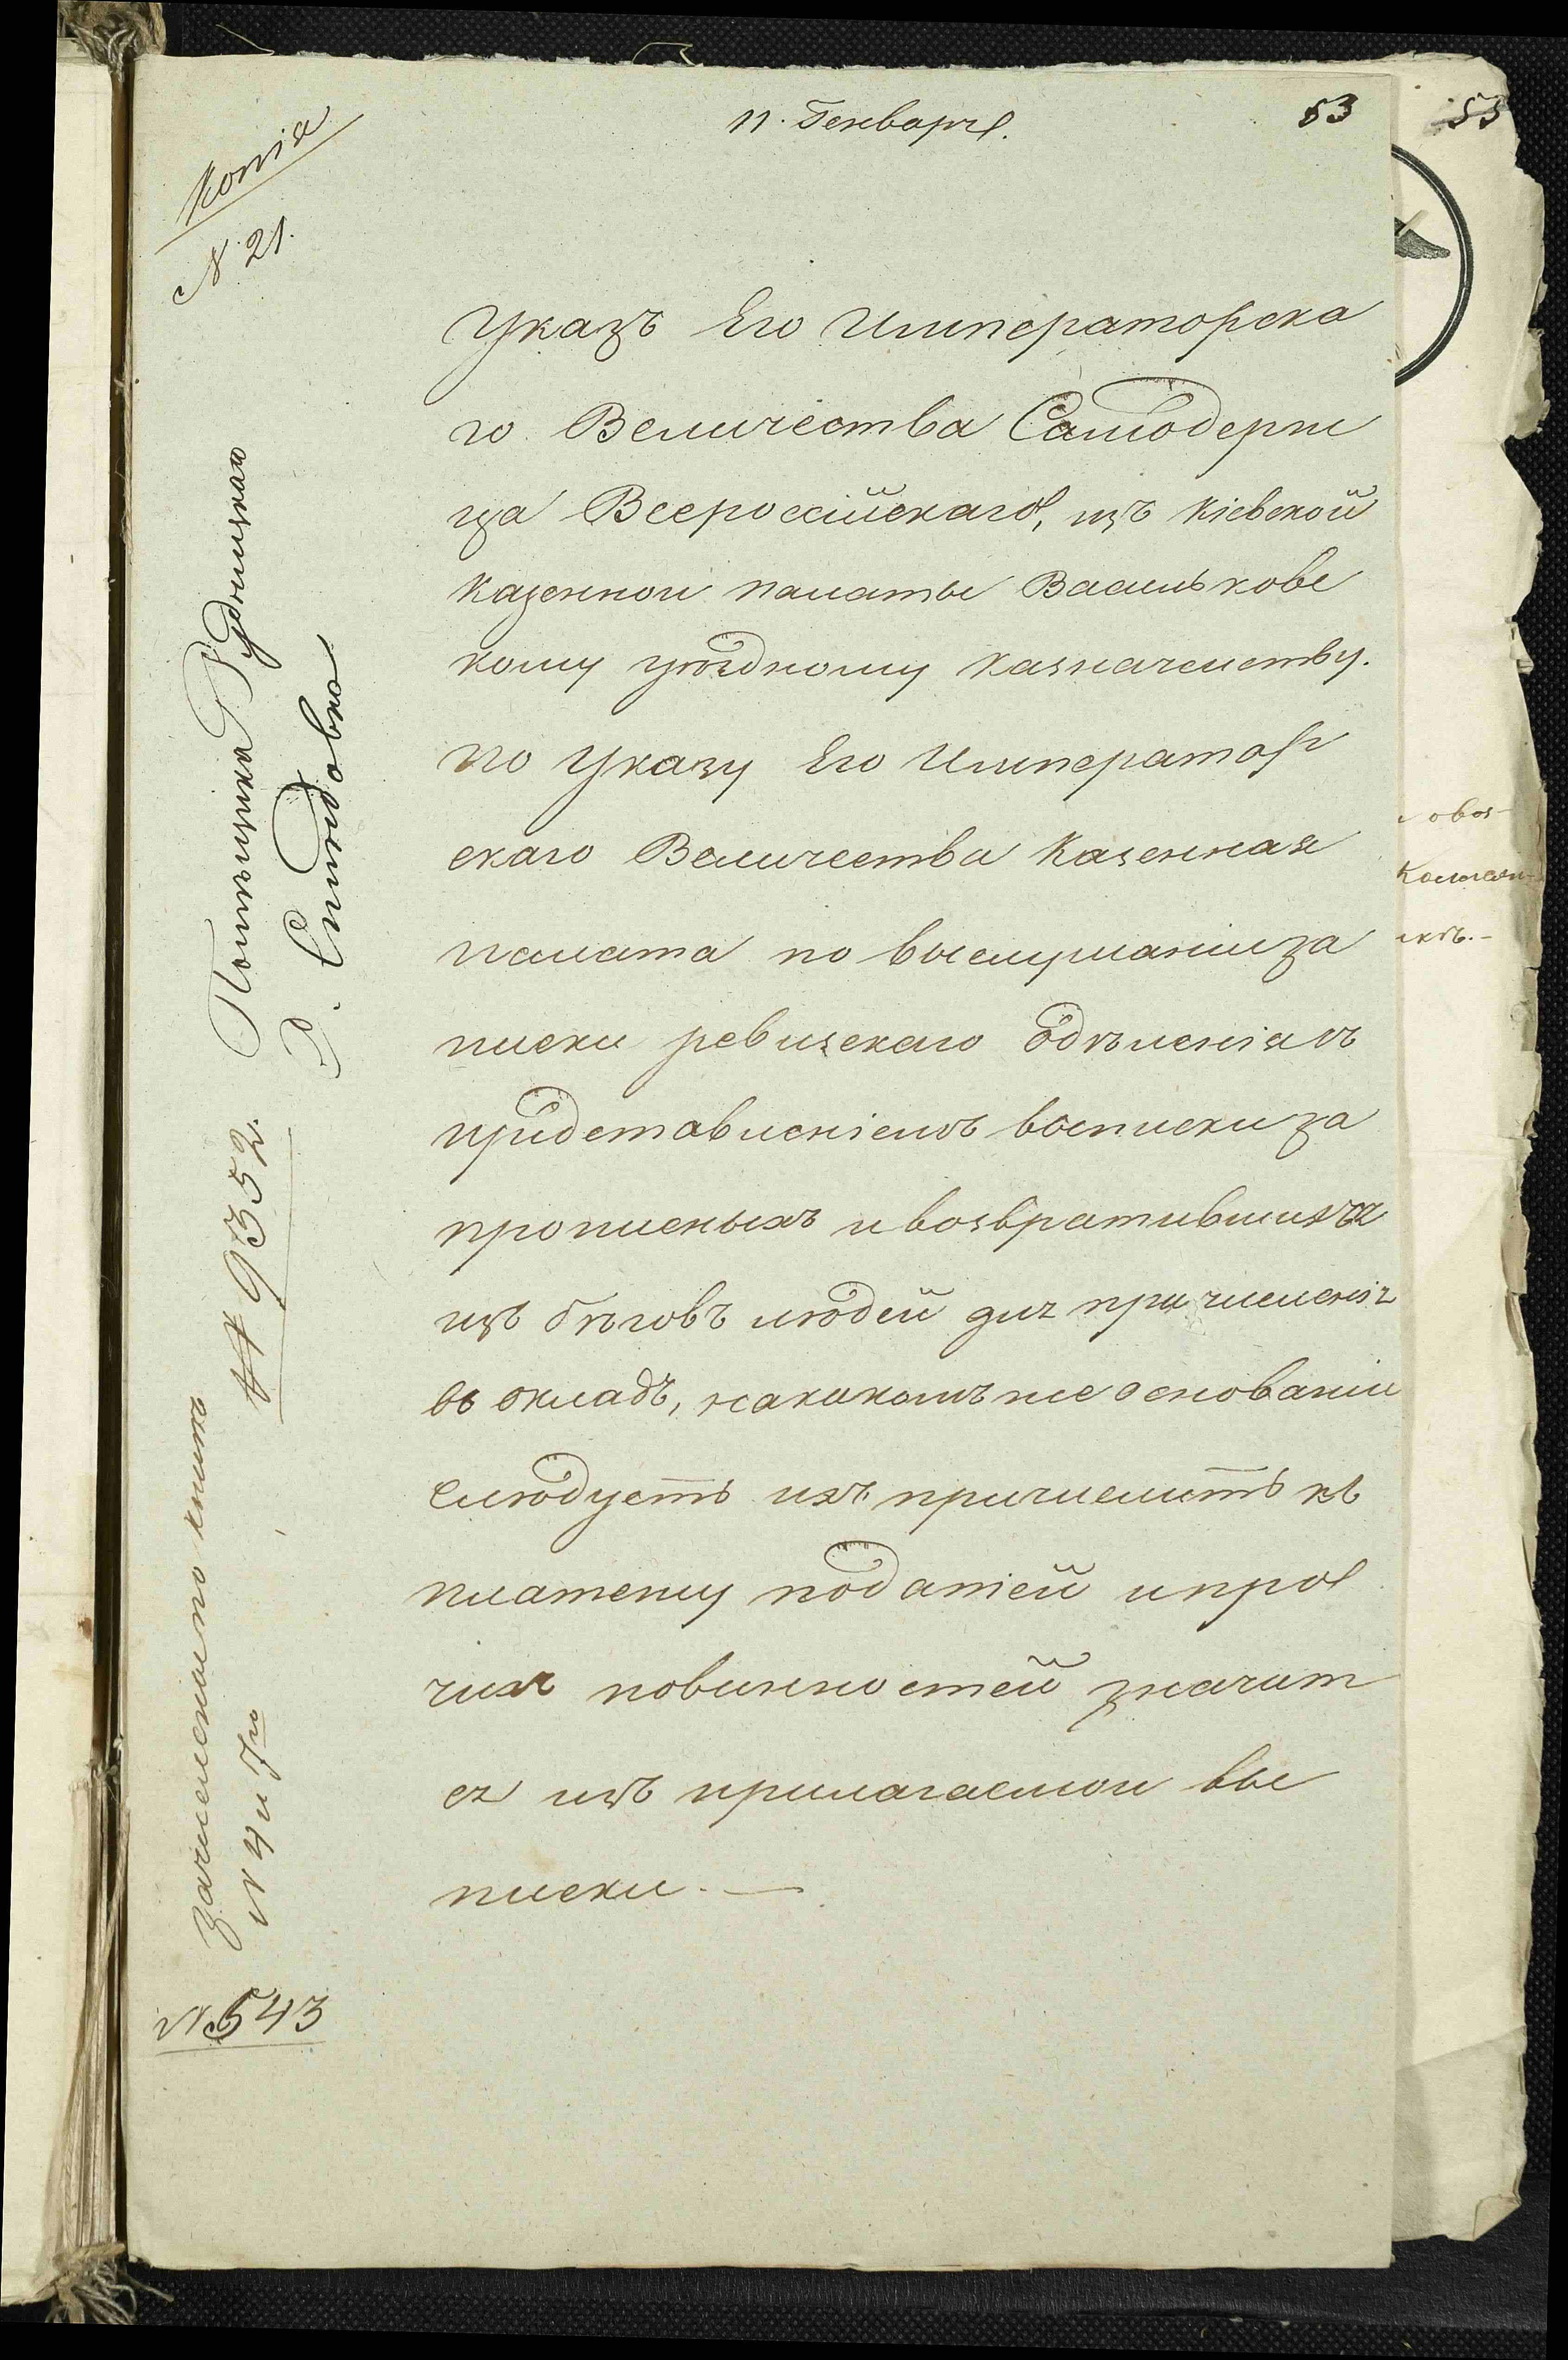 11. Генваря.
53
53
Копія
N. 21.
Указъ Его Императорска
го Величества Самодерж
ца Всероссійскаго, изъ Кіевской
Казенной палаты Васильковс
кому уѣздному Казначейству.
По Указу Его Император
скаго Величества Казенная
палата по выслушаніи за
писки ревизскаго одѣленія съ
придставленіемъ выписки за
прописныхъ и возвратившихся
изъ бѣговъ людей для причисленія
въ окладъ, накакомъ же основаніи
слѣдуетъ ихъ причислить къ
платежу податей и про
чихъ повинностей значит
ся изъ прилагаемой вы
писки. —
Помѣщика Рудницкаго
Д. Снитовка
№ 9352.
Зачисленые по книгѣ
N 4 и 7го
N. 543